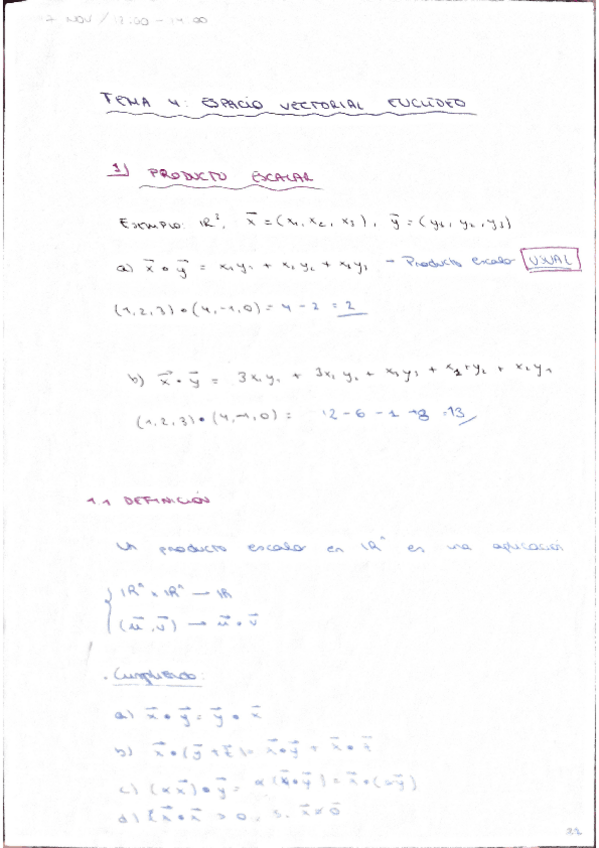 2 NOV / 13:00 - 14:00
TEMA 4: ESPACIO VECTORIAL EUCLÍDEO
1) PRODUCTO ESCALAR
EJEMPLO: ℝ³, x⃗ = (x₁, x₂, x₃), y⃗ = (y₁, y₂, y₃)
a) x⃗ • y⃗ = x₁y₁ + x₂y₂ + x₃y₃ → Producto escalar USUAL
(1,2,3)•(4,-1,0) = 4 - 2 = 2
b) x⃗ • y⃗ = 3x₁y₁ + 3x₂y₂ + x₃y₃ + x₁y₂ + x₂y₁
(1,2,3)•(4,-1,0) = 12 - 6 - 1 + 8 = 13
1.1 DEFINICIÓN
Un producto escalar en ℝⁿ es una aplicación
ℝⁿ × ℝⁿ → ℝ
(u⃗, v⃗) → u⃗ • v⃗
· Cumpliendo:
a) x⃗ • y⃗ = y⃗ • x⃗
b) x⃗ • (y⃗ + z⃗) = x⃗ • y⃗ + x⃗ • z⃗
c) (αx⃗) • y⃗ = α(x⃗ • y⃗) = x⃗ • (αy⃗)
d) x⃗ • x⃗ > 0, si x⃗ ≠ 0⃗
22